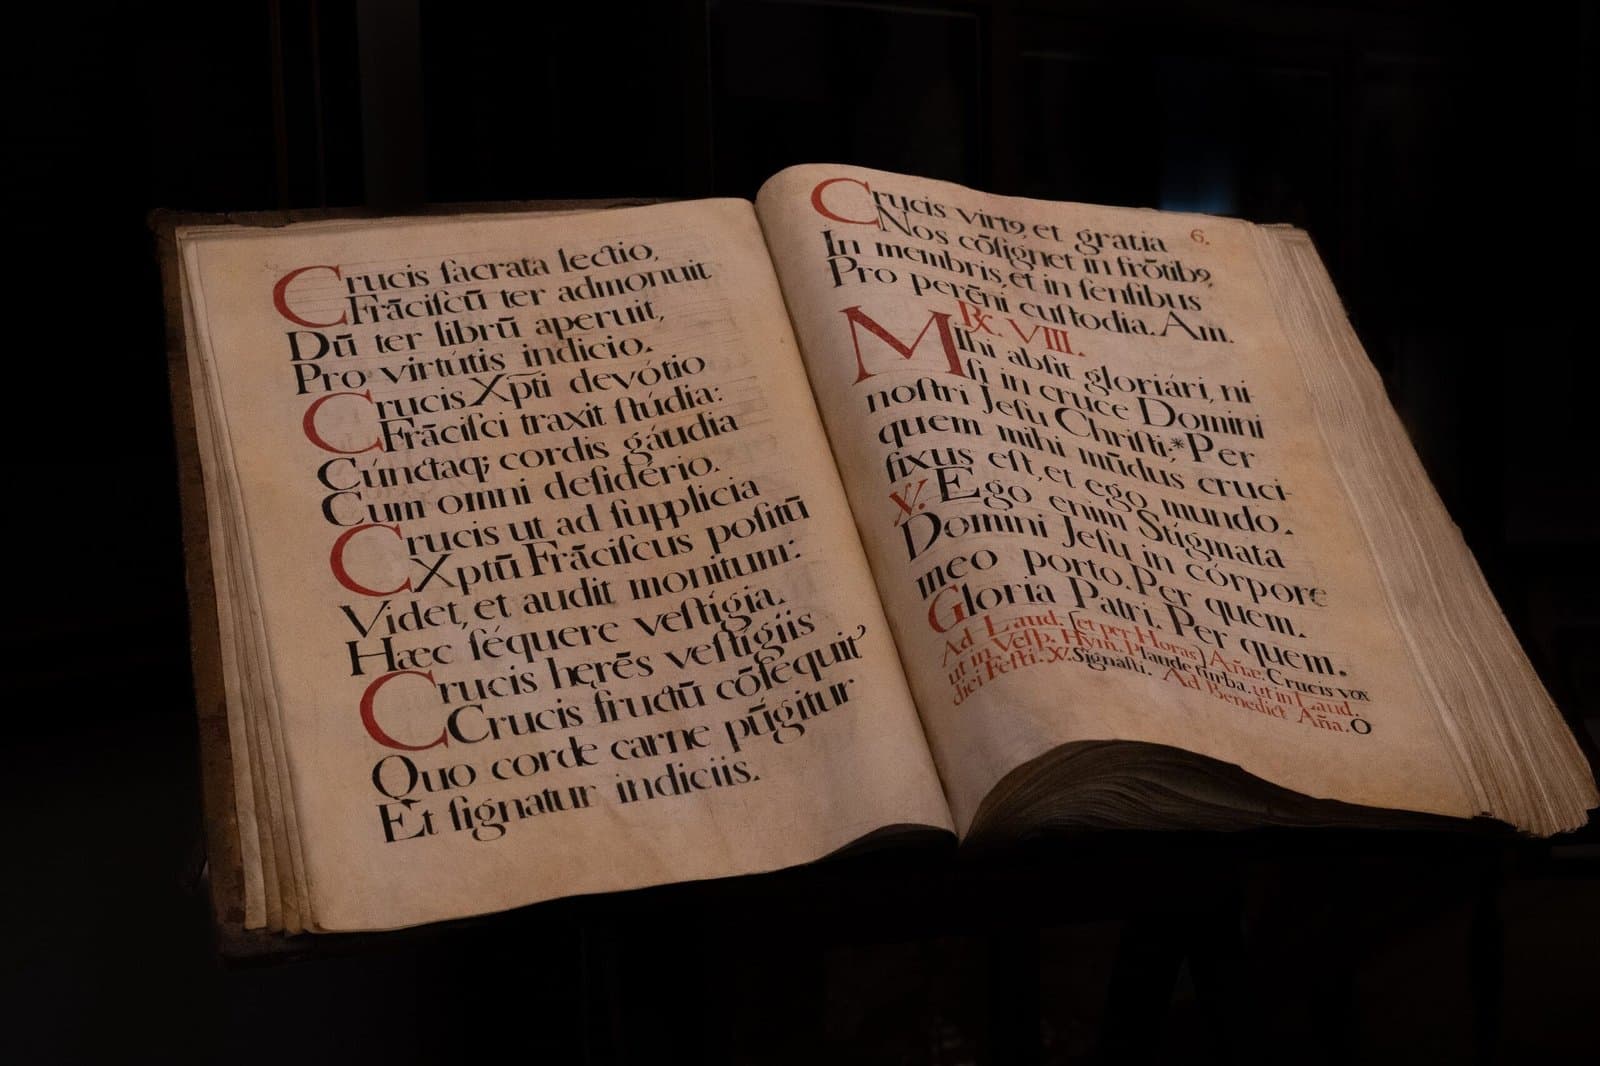 Crucis sacrata lectio,
Frāciſcū ter admonuit
Dū ter librū aperuit,
Pro virtútis indicio.
Crucis Xpti devótio
Frāciſci traxit ſtúdia:
Cúnctaq; cordis gáudia
Cum omni deſidério.
Crucis ut ad ſupplicia
Xptū Frāciſcus poſitū
Videt, et audit monitum:
Hæc ſéquere veſtígia.
Crucis hęrēs veſtigiis
Crucis fructū cōſequit
Quo corde carne pūgitur
Et ſignatur indiciis.
6.
Crucis virtꝰ, et gratia
Nos cōſignet in frōtibꝰ,
In membris, et in ſenſibus
Pro perēni cuſtodia. Am.
℟. VIII.
Mihi abſit gloriári, ni-
ſi in cruce Domini
noſtri Jeſu Chriſti; * Per
quem mihi mūdus cruci-
fixus eſt, et ego mundo.
℣. Ego enim Stígmata
Domini Jeſu in córpore
meo porto. Per quem.
Gloria Patri. Per quem.
Ad Laud. (et per Horas) Añæ. Crucis vox
ut in Veſp. Hym. Plaude turba. ut in Laud.
dici Feſti. ℣. Signaſti. Ad Benedict Aña. O